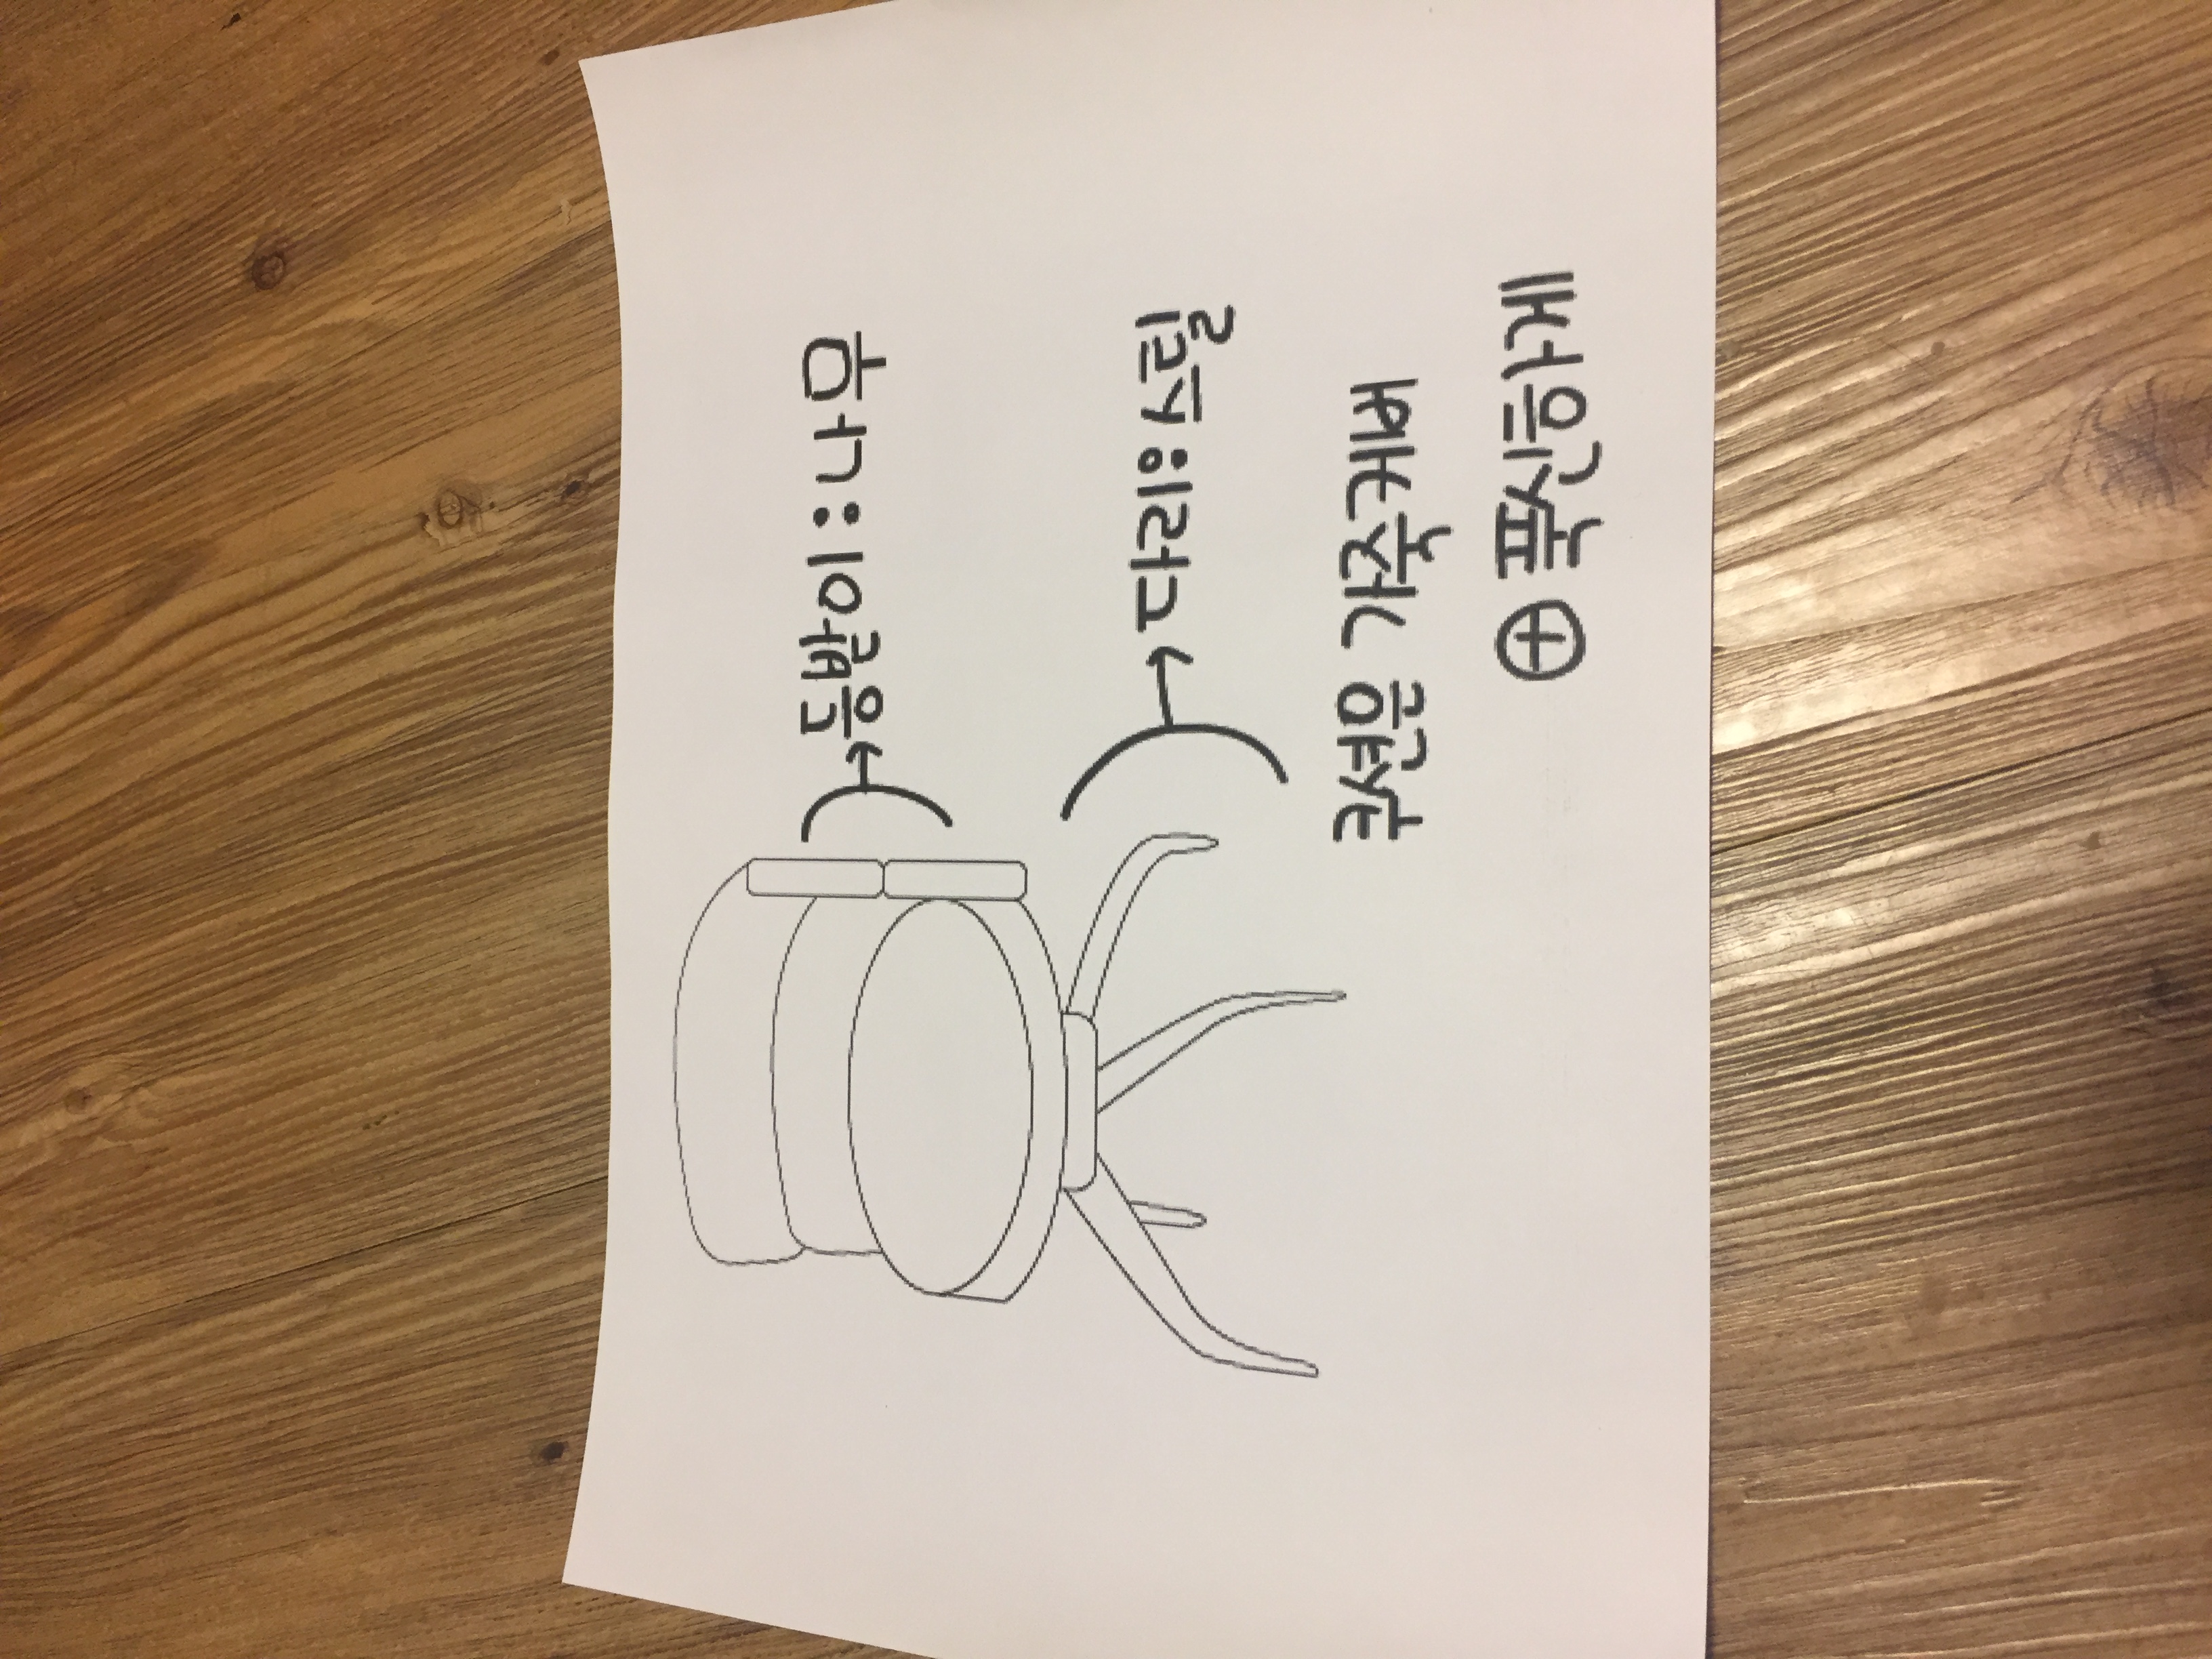 등받이 : 나무
다리 : 스틸
쿠션은 가죽커버
⊕ 푹신하게